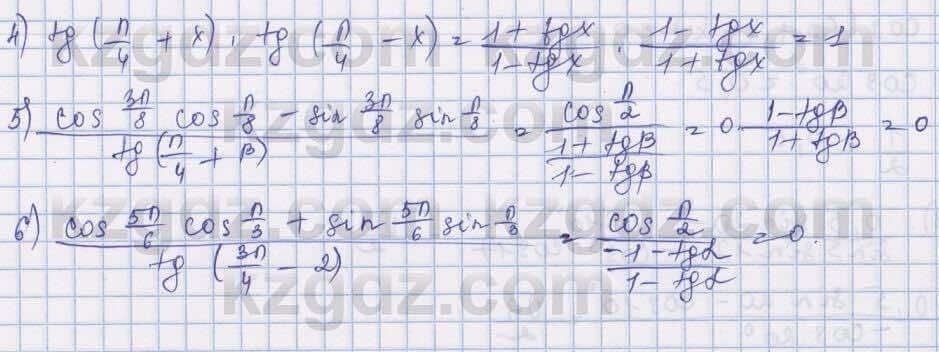 4) tg (π/4 + x) · tg (π/4 − x) = (1 + tgx)/(1 − tgx) · (1 − tgx)/(1 + tgx) = 1
5) (cos 3π/8 cos π/8 − sin 3π/8 sin π/8)/(tg (π/4 + β)) = (cos π/2)/((1 + tgβ)/(1 − tgβ)) = 0 · (1 − tgβ)/(1 + tgβ) = 0
6) (cos 5π/6 cos π/3 + sin 5π/6 sin π/3)/(tg (3π/4 − α)) = (cos π/2)/((−1 − tgα)/(1 − tgα)) = 0.
kzgdz.com kzgdz.com
kzgdz.com kzgdz.com
kzgdz.com kzgdz.com
kzgdz.com kzgdz.com